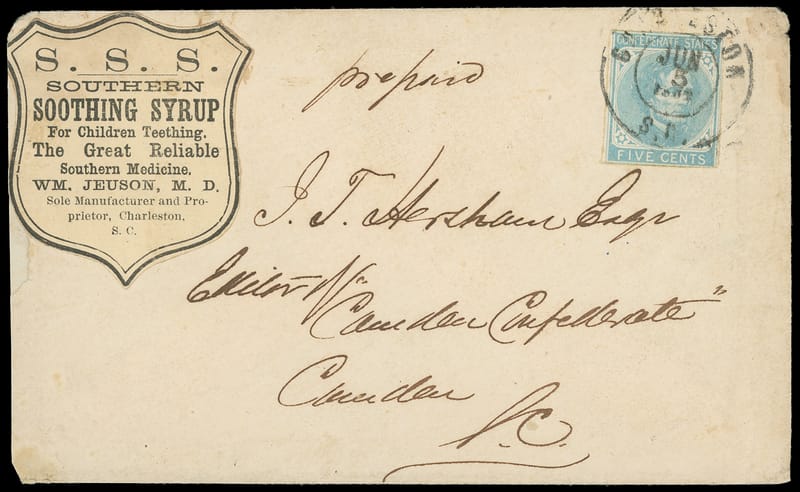 S. S. S.
SOUTHERN
SOOTHING SYRUP
For Children Teething.
The Great Reliable
Southern Medicine.
WM. JEUSON, M. D.
Sole Manufacturer and Pro-
prietor, Charleston.
S. C.
prepaid
CONFEDERATE STATES
FIVE CENTS
CHARLESTON
JUN
5
S. C.
J. T. Hersham Esqr
Editor
"Camden Confederate"
Camden
S.C.